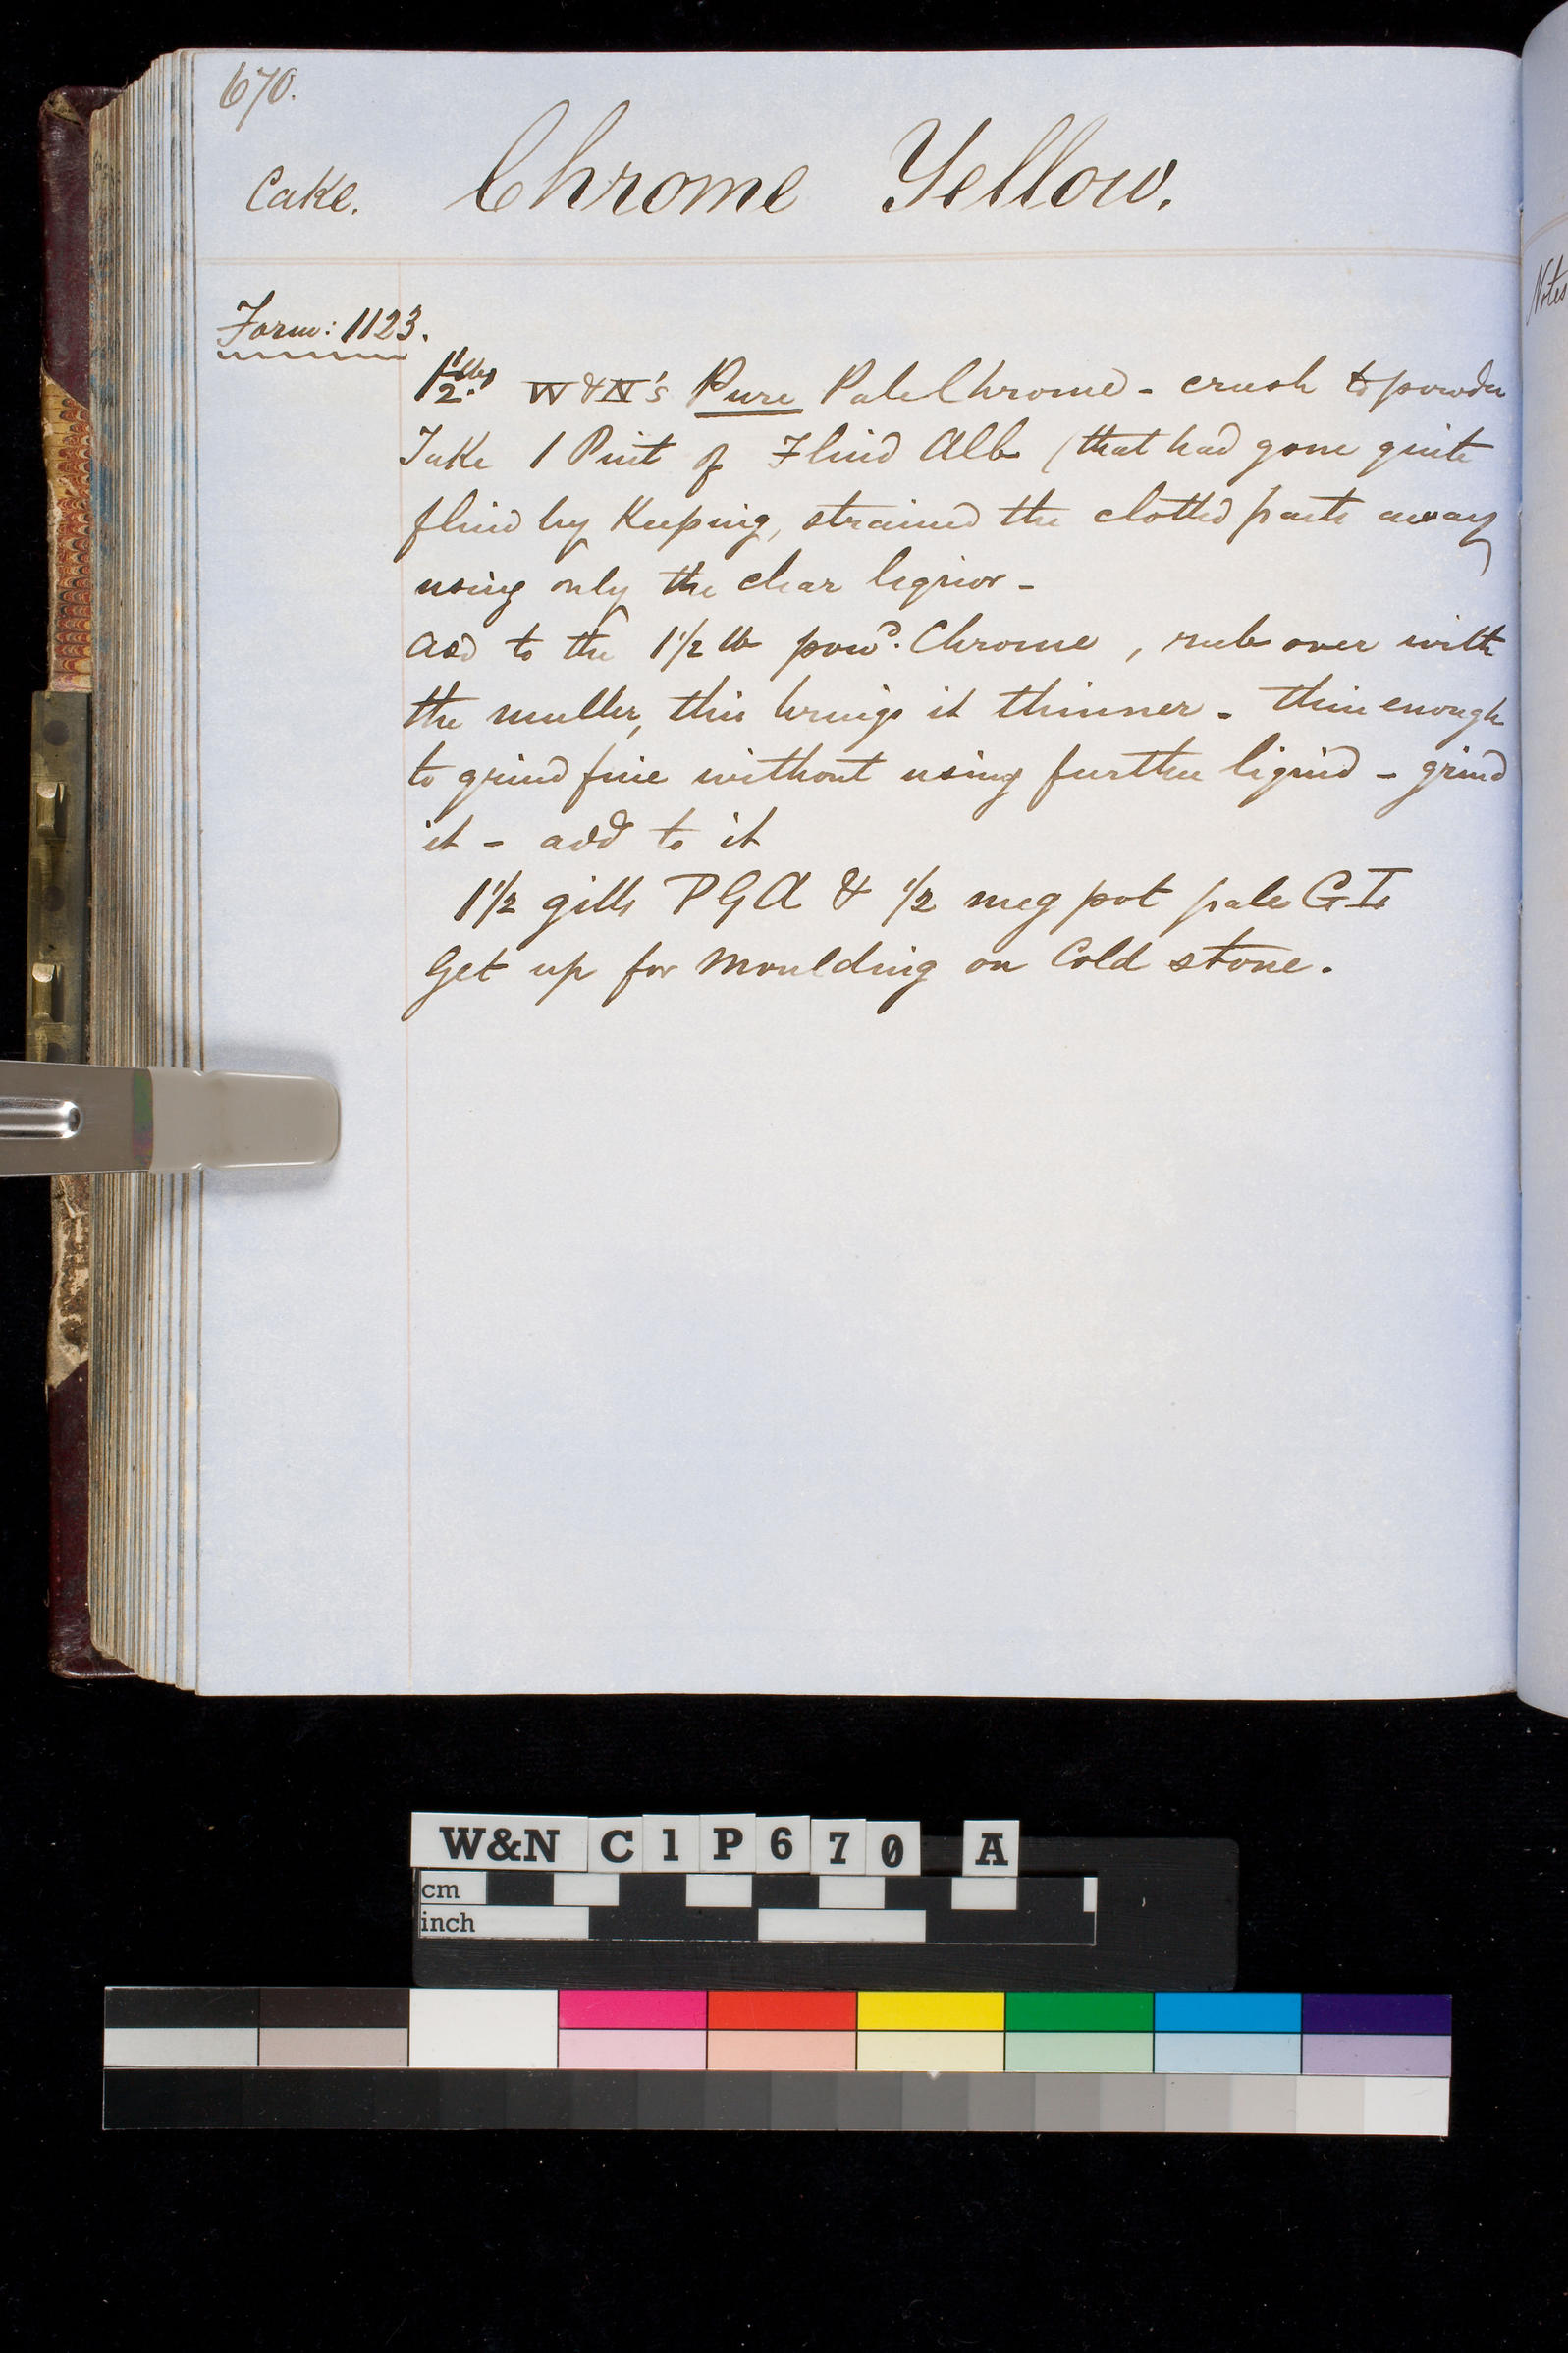 670.
Cake. Chrome Yellow.
Form: 1123.
1 1/2 lbs W&N's Pure Pale Chrome - crush to powder
Take 1 Pint of Fluid Alb (that had gone quite
fluid by Keeping, strained the clotted parts away
using only the clear liquor -
add to the 1 1/2 lb powd. Chrome, rub over with
the muller, this brings it thinner - thin enough
to grind fine without using further liquid - grind
it - add to it
1 1/2 gills PGA & 1/2 meg pot pale G
Get up for Moulding on Cold stone.
Notes
W&N C1P670 A
cm
inch